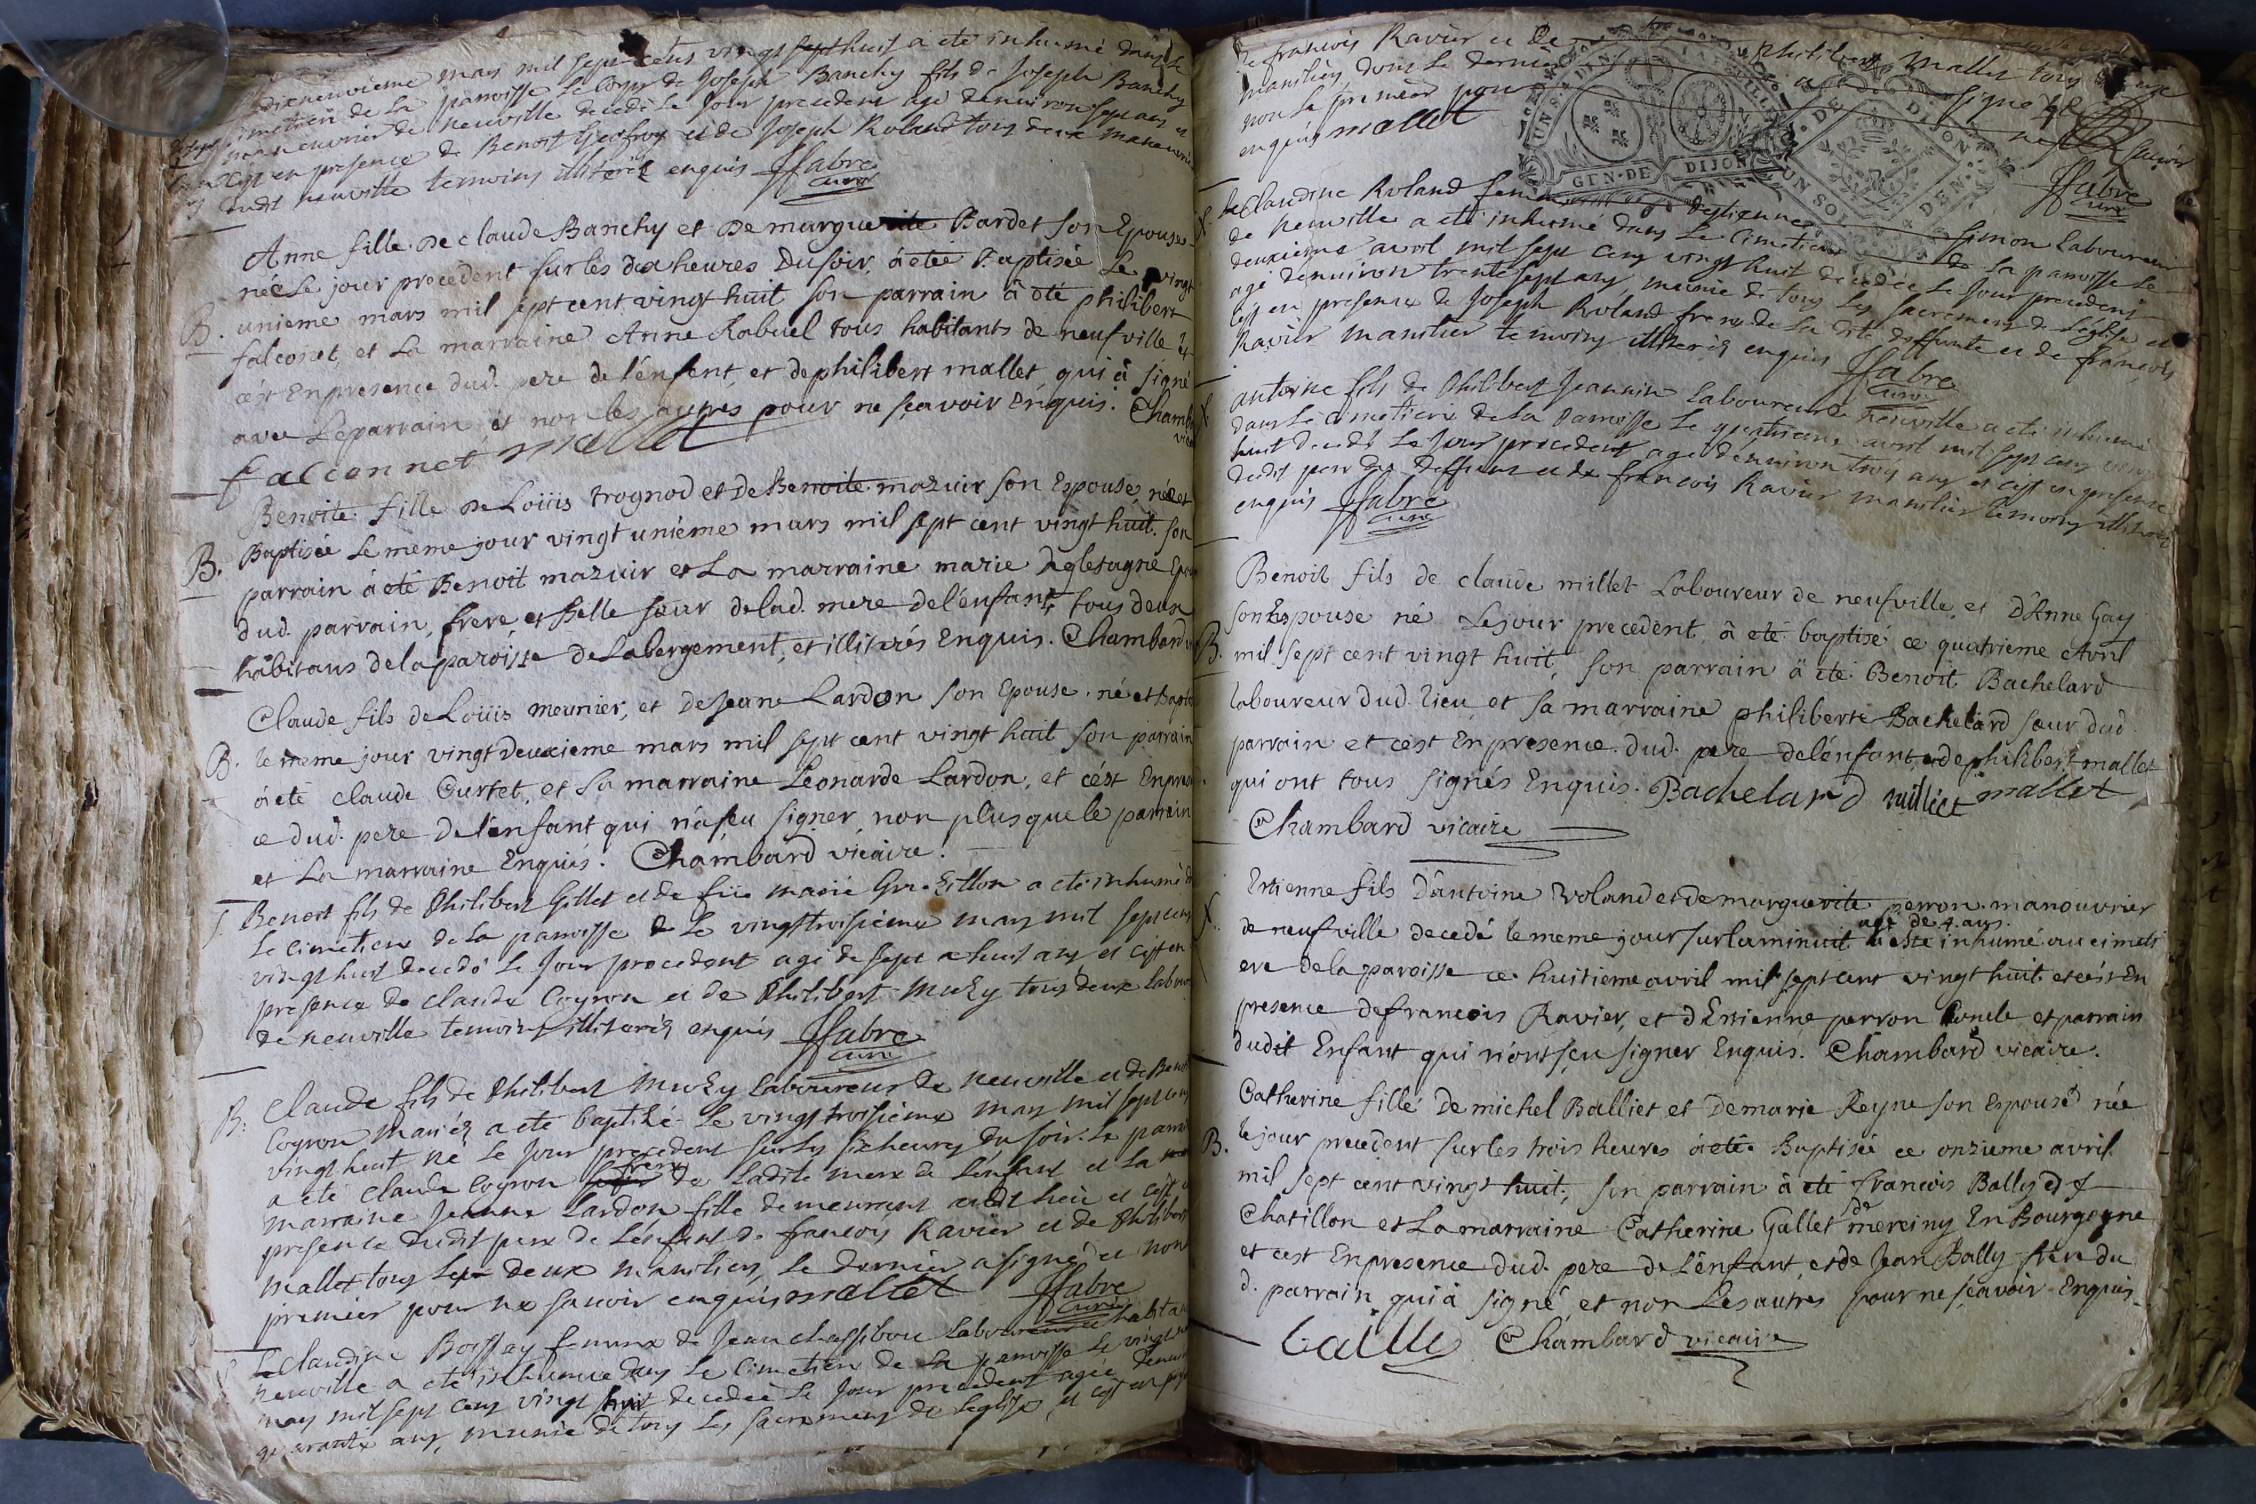 dixneuvieme mars mil sept cens vingt huit a eté inhumé dans le
cimetiere de la paroisse le corps de Joseph Banchy fils de Joseph Banchy
manouvrier de neuville decedé le jour precedent agé denuiron sept ans et
c'est en presence de Benoit Geofroy et de Joseph Roland tous deux manouvriers
dudit neuville temoins illiterés enquis ffabre
curé
Anne fille de claude Banchy et de marguerite Bardet son Epouse
née Le jour precedent sur les dix heures du soir, a eté Baptisée Le vingt
B. unieme mars mil sept cent vingt huit son parrain â eté philibert
falconet, et La marraine Anne Rabuel tous habitants de neufville et
c'ést En presence dud. pere de l'énfent, et de philibert mallet qui â signé
avec Le parrain et non les autres pour ne sçavoir Enquis. Chambard
vicaire
falconnet mallet
Benoite fille de Loüis trognod et de Benoite mazuir son Espouse, née et
B. Baptisée Le meme jour vingt uniéme mars mil sept cent vingt huit. son
parrain â eté Benoit mazuir et La marraine marie Epouse
dud. parrain, frere et belle sœur de lad. mere de l'énfant, tous deux
habitans de la paroisse de Labergement, et illiterés Enquis. Chambard
Claude fils de Loüis meunier, et de Jeane Lardon son Epouse. né et Baptisé
B. le meme jour vingt deuxieme mars mil sept cent vingt huit son parrain
a eté claude Curtet, et sa marraine Leonarde Lardon, et c'ést En presen
ce dud. pere de l'enfant qui n'a sçu signer, non plus que le parrain
et La marraine Enquis. Chambard vicaire.
Benoit fils de Philibert Gillet et de füe marie a eté inhumé dans
Le cimetiere de la paroisse Le vingt troisieme mars mil sept cens
vingt huit decedé Le jour precedent agé de sept a huit ans et c'est en
presence de claude Coyron et de Philibert Muzy tous deux laboureurs
de neuville temoins illiterés enquis ffabre
curé
B. Claude fils de Philibert Muzy laboureur de neuville et de Benoite
Coyron mariés a eté baptisé Le vingt troisieme mars mil sept cens
vingt huit né Le jour precedent sur les six heures du soir. Le parrain
a eté claude Coyron frere de Ladite mere de L'enfant et La
marraine Jeanne Lardon fille demeurant audit lieu et c'est en
presence dudit pere de L'énfant de francois Ravier et de Philibert
mallet tous deux maniliers, Le dernier a signé et non le
premier pour ne sauoir enquis mallet ffabre
curé
Claudine Boissey femme de Jean chassibou Laboureur habitant
neuville a eté inhumée dans Le cimetiere de La paroisse Le vingt
mars mil sept cens vingt huit decedée Le Jour precedent agée denuiron
quarante ans, munie de tous Les sacremens de L'eglise, et c'est en presence
de francois Ravier et de Philibert Mallet tous
maniliers, dont Le dernier a signé
non Le premier pour ne sçavoir
enquis mallet ffabre
curé
GEN. DE DIJON
UN SOL
DEN.
Claudine Roland femme destienne Simon Laboureur
de neuville a eté inhumé dans Le cimetiere de La paroisse Le
deuxieme avril mil sept cens vingt huit decedée Le Jour precedent
agé denuiron trente sept ans, munie de tous Les sacremens de L'eglise et
c'est en presence de Joseph Roland frere de La dite deffunte et de francois
Ravier manilier temoins illiterés enquis ffabre
curé
antoine fils de Philibert Jeannin Laboureur de neuville a eté inhumé
dans Le cimetiere de La Paroisse Le quatrieme avril mil sept cens vingt
huit decedé Le Jour precedent agé denuiron trois ans et c'est en presence
dudit pere du deffunt et de francois Ravier manilier temoins illiterés
enquis ffabre
curé
Benoit fils de claude millet Laboureur de neufville, et D'Anne Gay
son Espouse né Le jour precedent, â eté baptisé ce quatrieme Avril
B. mil sept cent vingt huit, son parrain â eté Benoit Bachelard
laboureur dud. lieu, et sa marraine philiberte Bachelard sœur dud.
parrain et c'ést En presence dud. pere de l'énfant, et de philibert mallet
qui ont tous signés Enquis. Bachelard milliet mallet
Chambard vicaire
Estienne fils D'antoine Roland et de marguerite perron manouvrier
agé de 4. ans.
de neufville decedé le meme jour sur la minuit â esté inhumé au cimeti
ere de la paroisse ce huitieme avril mil sept cent vingt huit. et c'ést En
presence de francois Ravier, et d'Estienne perron oncle et parrain
dudit Enfant qui n'ont sçu signer Enquis. Chambard vicaire.
Catherine fille de michel Balliet et de marie Reyne son Espouse née
le jour precedent sur les trois heures â eté Baptisée ce onzieme avril
B. mil sept cent vingt huit, son parrain â eté francois Bally de
Chatillon et La marraine Catherine Gallet de mereiny En Bourgogne
et c'est En presence dud. pere de L'énfant et de Jean Bally frere du
d. parrain qui â signé et non Les autres pour ne sçavoir Enquis.
Bailly Chambard vicaire